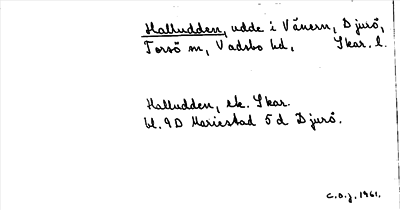 Halludden, udde i Vänern, Djurö,
Torsö sn, Vadsbo hd, Skar. l.
Halludden, ek. Skar.
bl. 9D Mariestad 5d Djurö.
C.O.J. 1961.